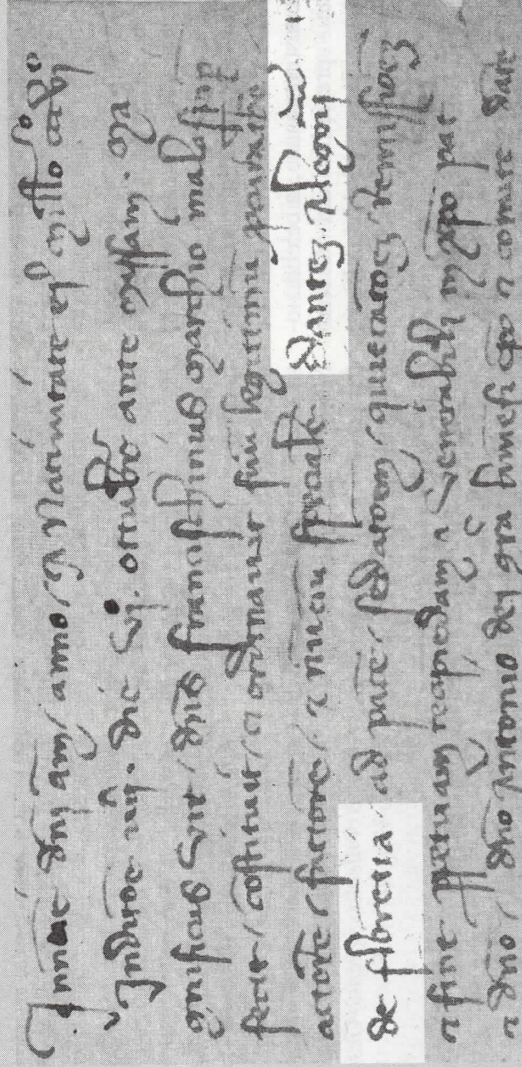 In noie dni am / anno / a Natiuitate eiꝰ millo cccvj
Indictoe iiij. die vj. octubr ante missam. Ma
gnificus vir / dns franceschinus marchio malaspin
fecit / costituit / ⁊ ordinauit suu legitimu pcuratore
actore / factore / ⁊ nuciu speciale Dantez Alegerij
de florētia ad pace / sedatoem / quietatoez remissioez
⁊ fine ppetuam recipiedam a venerabili in xpo pat
⁊ dno / dno Antonio dei gra lunesi epo ⁊ comite dare